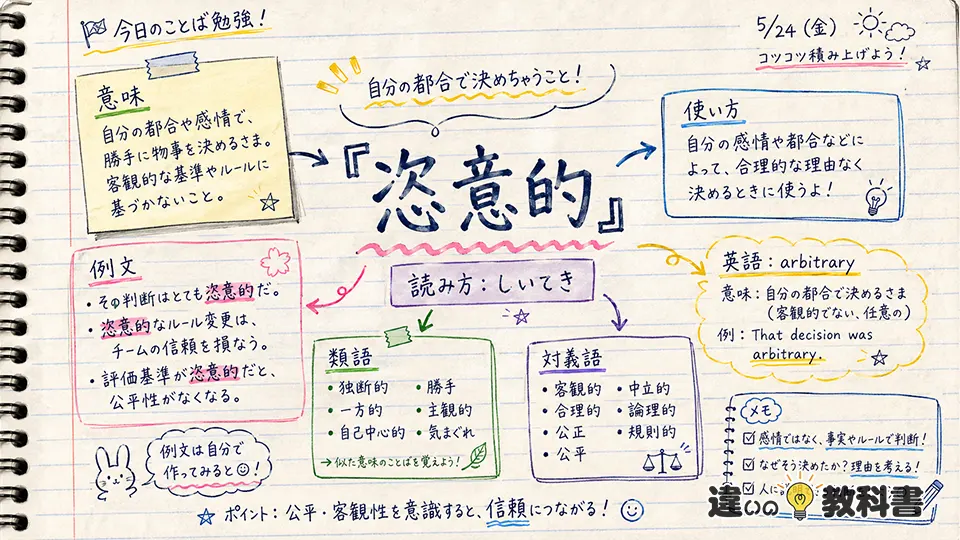 今日のことば勉強！
5/24（金）
コツコツ積み上げよう！
意味
自分の都合や感情で、
勝手に物事を決めるさま。
客観的な基準やルールに
基づかないこと。
自分の都合で決めちゃうこと！
『恣意的』
読み方：しいてき
使い方
自分の感情や都合などに
よって、合理的な理由なく
決めるときに使うよ！
例文
・その判断はとても恣意的だ。
・恣意的なルール変更は、
チームの信頼を損なう。
・評価基準が恣意的だと、
公平性がなくなる。
例文は自分で
作ってみると☺！
類語
・独断的 ・勝手
・一方的 ・主観的
・自己中心的 ・気まぐれ
→似た意味のことばを覚えよう！
対義語
・客観的 ・中立的
・合理的 ・論理的
・公正 ・規則的
・公平
英語：arbitrary
意味：自分の都合で決めるさま
（客観的でない、任意の）
例：That decision was
arbitrary.
メモ
☑感情ではなく、事実やルールで判断！
☑なぜそう決めたか？理由を考える！
☑人に
違いの教科書
☆ ポイント：公平・客観性を意識すると、信頼につながる！☺